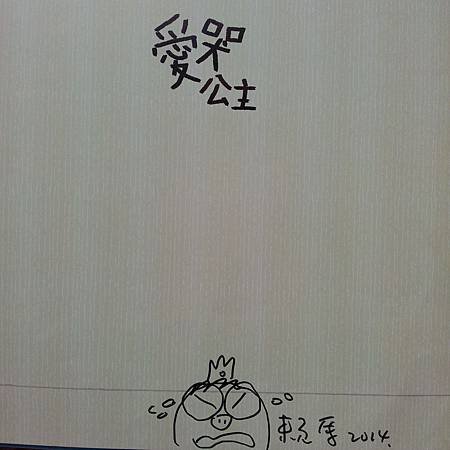 愛哭
公主
賴馬 2014.